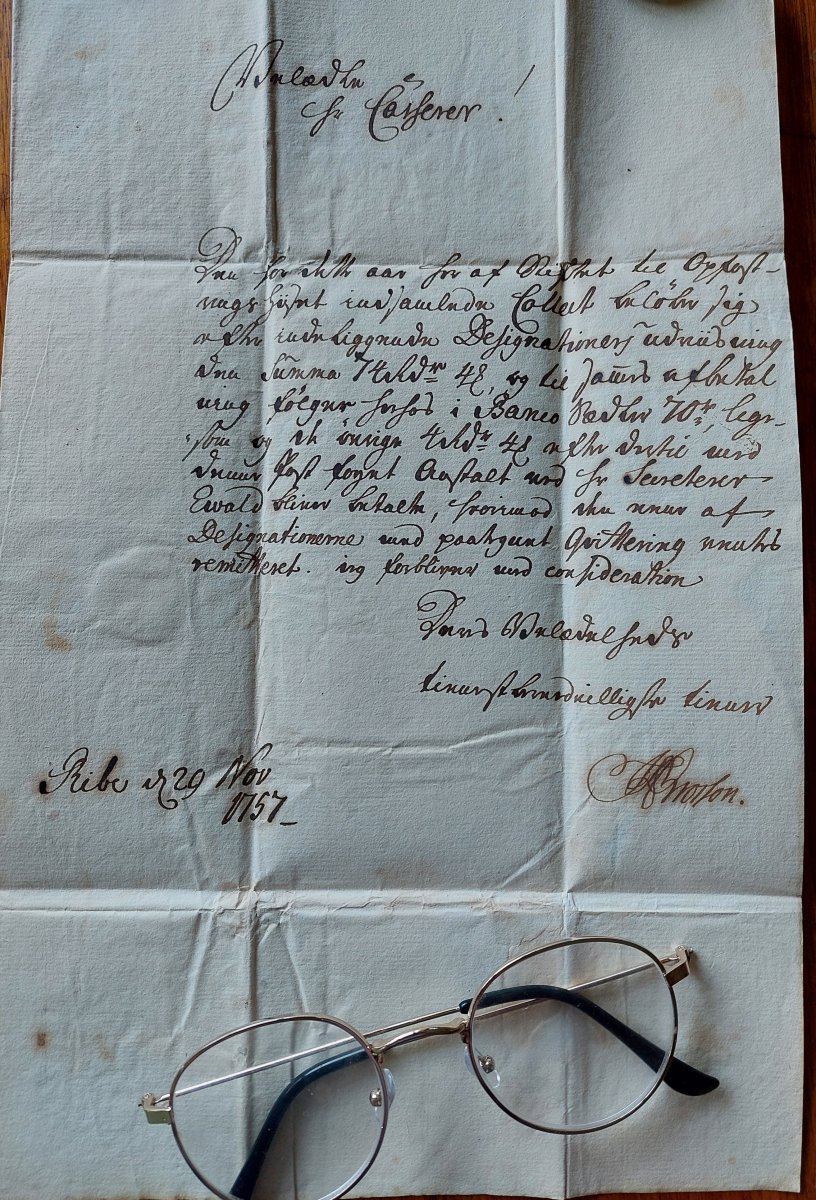 Velædle
Hr Casserer!
Den for dette aar her af Stiftet til Opfost-
rings Huset indsamlede Collect beløber sig
efter indeliggende Designationers udviisning
den Summa 74 Rdr 4 ß, og til sammes afbetal
ning følger herhos i Banco Sedler 70 r, lige-
som og de øvrige 4 Rdr 4 ß efter dertil med
denne Post føyet Anstalt ved Hr Secreterer
Ewald bliver betalte, hvorimod den eene af
Designationerne med paategnet Qvittering ventes
remitteret. jeg forbliver med consideration
Deres Velædelheds
tienstberedvilligste tiener
Ribe d 29 Nov
1757
Brorson.